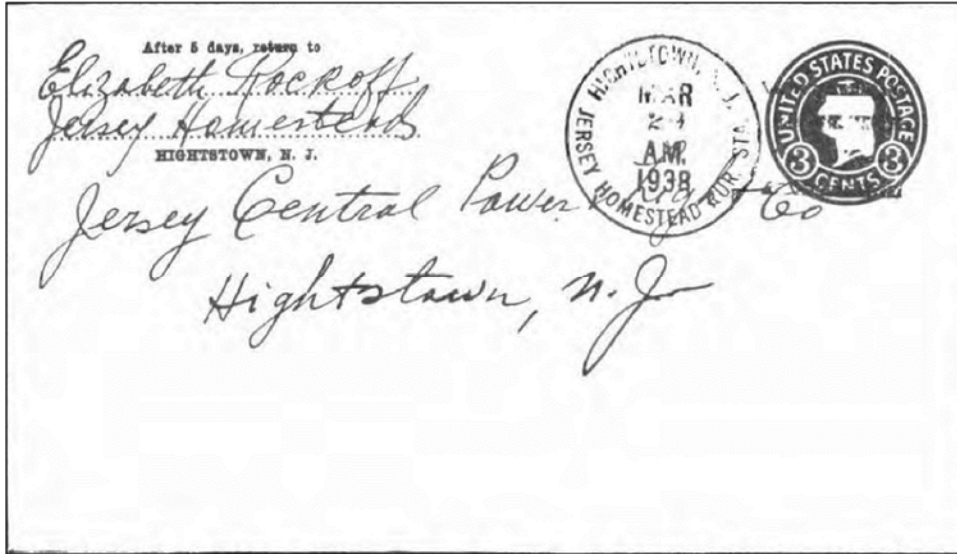 After 5 days, return to
Elizabeth Rockoff
Jersey Homesteads
HIGHTSTOWN, N. J.
HIGHTSTOWN, N. J.
MAR
A.M.
1938
JERSEY HOMESTEAD RUR. STA.
UNITED STATES POSTAGE
3 CENTS 3
Jersey Central Power Co
Hightstown, N. J.